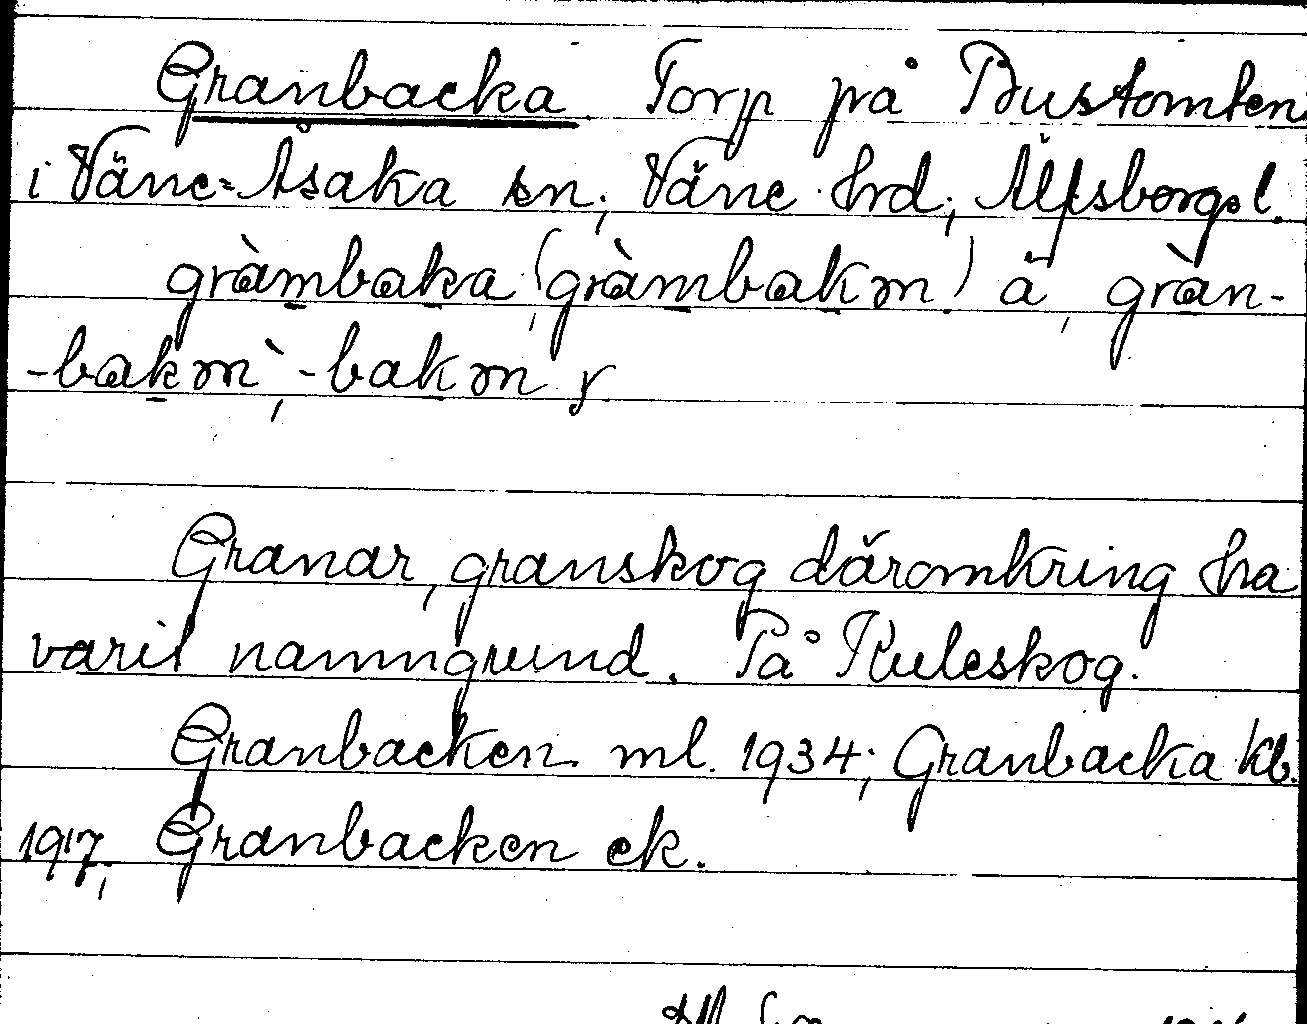 Granbacka Torp på Bustomten
i Väne-Åsaka sn, Väne hrd, Älfsborgs l.
gràmbaka (gràmbakm) å, gràn-
-bakm`, -bakm r
Granar, granskog däromkring ha
varit namngrund. På Kuleskog.
Granbacken ml. 1934; Granbacka kb.
1917; Granbacken ek.